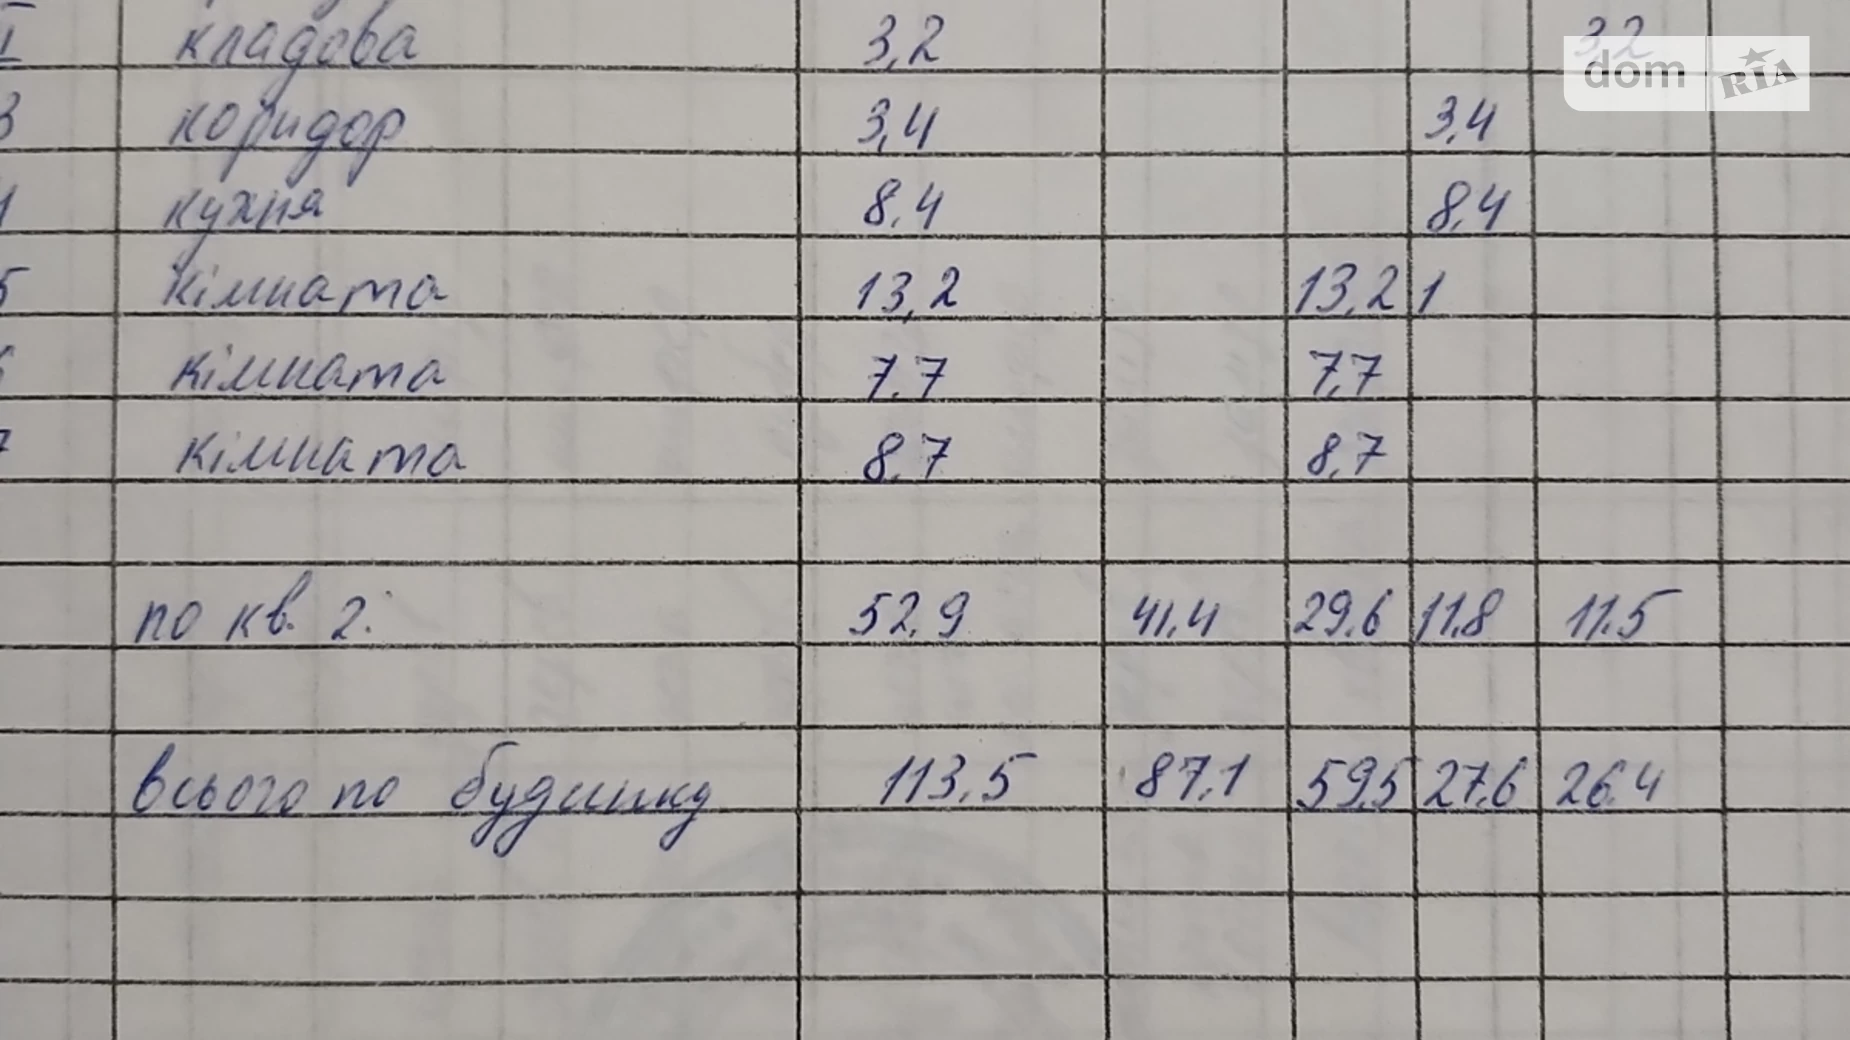 І кладова 3,2 3,2
dom RIA
3 коридор 3,4 3,4
кухня 8,4 8,4
5 кімната 13,2 13,2 1
кімната 7,7 7,7
7 кімната 8,7 8,7
по кв. 2: 52,9 41,4 29,6 11,8 11.5
всього по будинку 113,5 87,1 59,5 27,6 26,4